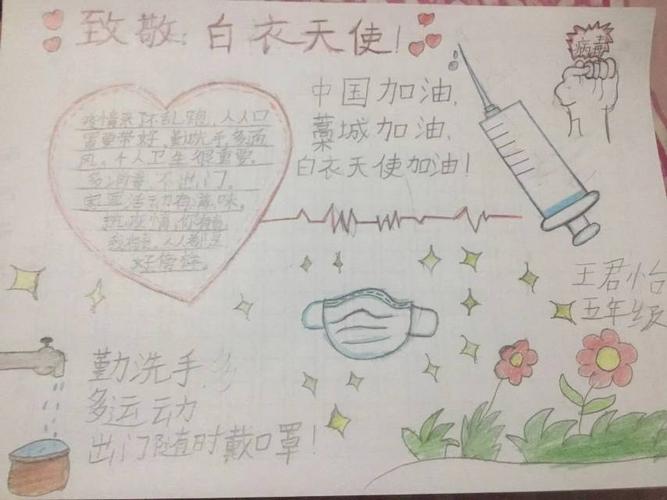 致敬：白衣天使！
病毒
中国加油，
藁城加油，
白衣天使加油！
疫情来了不乱跑，人人口
罩要带好，勤洗手，多通
风，个人卫生很重要。
多消毒，不出门。
家里活动有滋味。
抗疫情，你有责
我有责，人人都是
好榜样。
王君怡
五年级
勤洗手 多
多运动
出门随时戴口罩！